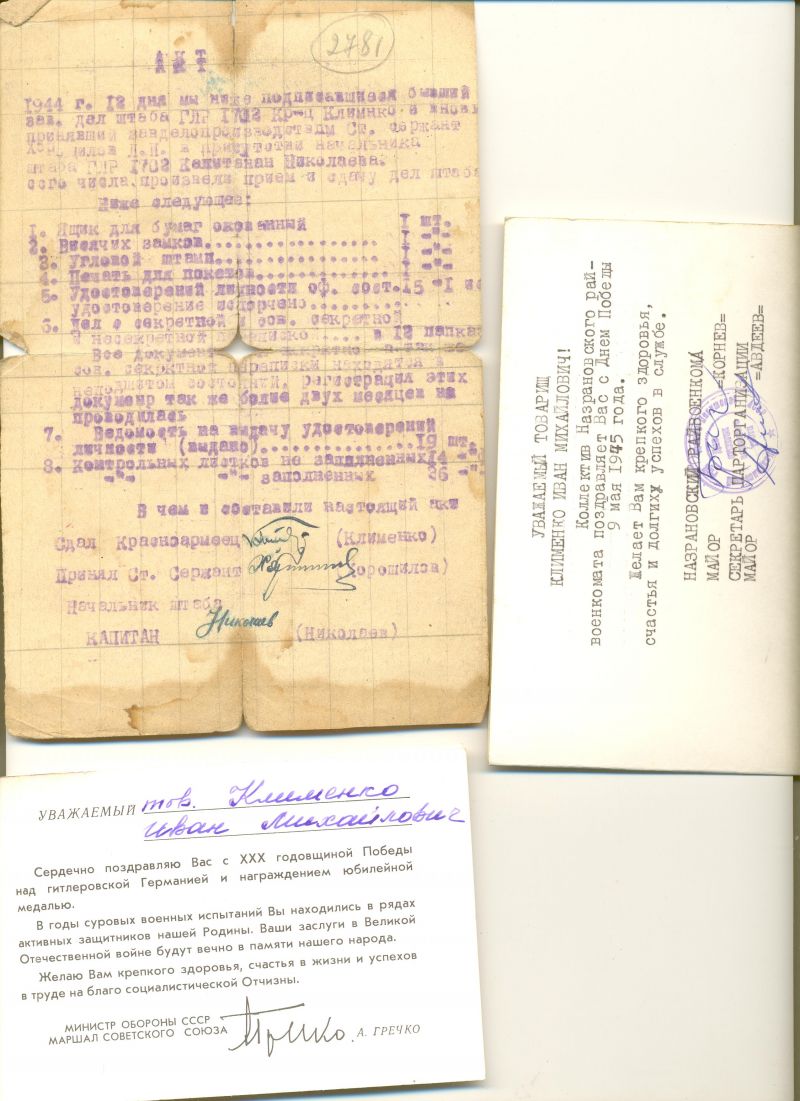 2781
АКТ
1944 г. 12 дня мы ниже подписавшиеся бывший
зав. дел штаба ГЛР 1702 Кр-ц Клименко и вновь
принявший завделопроизводством Ст. сержант
в присутствии начальника
штаба ГЛР 1702 Капитанан Николаева.
сого числа, произвели прием и сдачу дел штаба
Ниже следующее:
1. Ящик для бумаг окованный I шт.
2. Висячих замков.................. I -"-
3. Угловой штамп................... I -"-
4. Печать для покетов.............. I -"-
5. Удостоверений личности оф. сост. 15 -"- I
удостоверение испорчено..........
6. Дел с секретной и сов. секретной
и несекретной .... в 12 папках
Все
сов. секретной находятся в
состояний, регистрация этих
докумнр так же более двух месяцев на
проводилась
7. Ведомость на выдачу удостоверений
личности (выдано)................19 шт.
8. Контрольных листков не заполненных 14 -"-
-"- -"- заполненных 26 -"-
В чем и составили настоящий акт
Сдал Красноармеец (Клименко)
Принял Ст. Сержант
Начальник штаба
КАПИТАН Николаев (Николаев)
УВАЖАЕМЫЙ ТОВАРИЩ
КЛИМЕНКО ИВАН МИХАЙЛОВИЧ!
Коллектив Назрановского рай-
военкомата поздравляет Вас с Днем Победы
9 мая 1945 года.
Желает Вам крепкого здоровья,
счастья и долгих успехов в службе.
НАЗРАНОВСКИЙ РАЙВОЕНКОМ
МАЙОР =КОРНЕВ=
СЕКРЕТАРЬ ПАРТОРГАНИЗАЦИИ
МАЙОР =АВДЕЕВ=
УВАЖАЕМЫЙ тов. Клименко
Иван Михайлович
Сердечно поздравляю Вас с XXX годовщиной Победы
над гитлеровской Германией и награждением юбилейной
медалью.
В годы суровых военных испытаний Вы находились в рядах
активных защитников нашей Родины. Ваши заслуги в Великой
Отечественной войне будут вечно в памяти нашего народа.
Желаю Вам крепкого здоровья, счастья в жизни и успехов
в труде на благо социалистической Отчизны.
МИНИСТР ОБОРОНЫ СССР
МАРШАЛ СОВЕТСКОГО СОЮЗА Гречко А. ГРЕЧКО